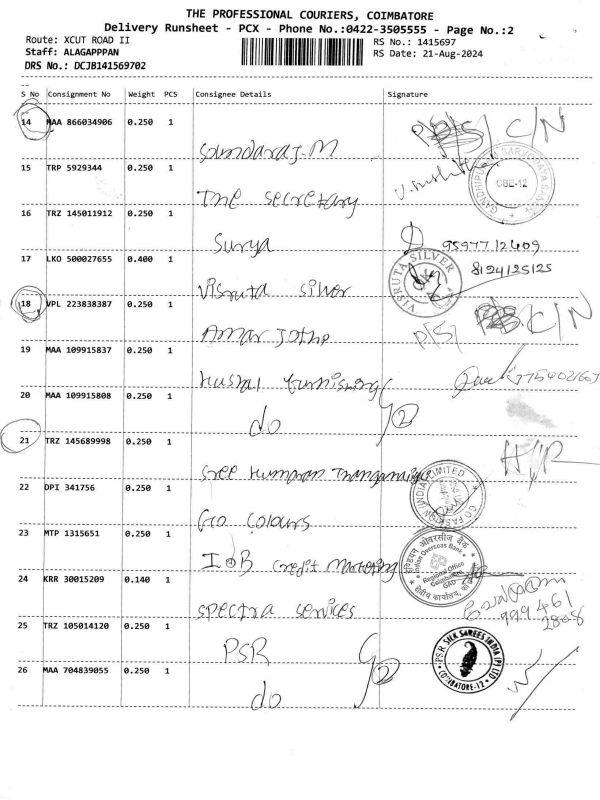 THE PROFESSIONAL COURIERS, COIMBATORE
Delivery Runsheet - PCX - Phone No.:0422-3505555 - Page No.:2
Route: XCUT ROAD II
RS No.: 1415697
Staff: ALAGAPPPAN
RS Date: 21-Aug-2024
DRS No.: DCJB141569702
S No Consignment No Weight PCS Consignee Details Signature
14 MAA 866034906 0.250 1 Soundaraj.M P/S C/N
15 TRP 5929344 0.250 1 The Secretary
CBE-12
16 TRZ 145011912 0.250 1 Surya 95977 12409
17 LKO 500027655 0.400 1 Visruta Silver 8124125125
VISRUTA SILVER
18 VPL 223838387 0.250 1 Amar Jothi P/S C/N
19 MAA 109915837 0.250 1
20 MAA 109915808 0.250 1 do 2
21 TRZ 145689998 0.250 1 Sree Kumaran
22 DPI 341756 0.250 1 Go Colours
23 MTP 1315651 0.250 1 IOB Credit Marketing
Indian Overseas Bank
Regional Office
Coimbatore
24 KRR 30015209 0.140 1 Spectra Services
999461
2808
25 TRZ 105014120 0.250 1 PSR
P.S.R. SILK SAREES INDIA (P) LTD
COIMBATORE-12
26 MAA 704839055 0.250 1 do 2